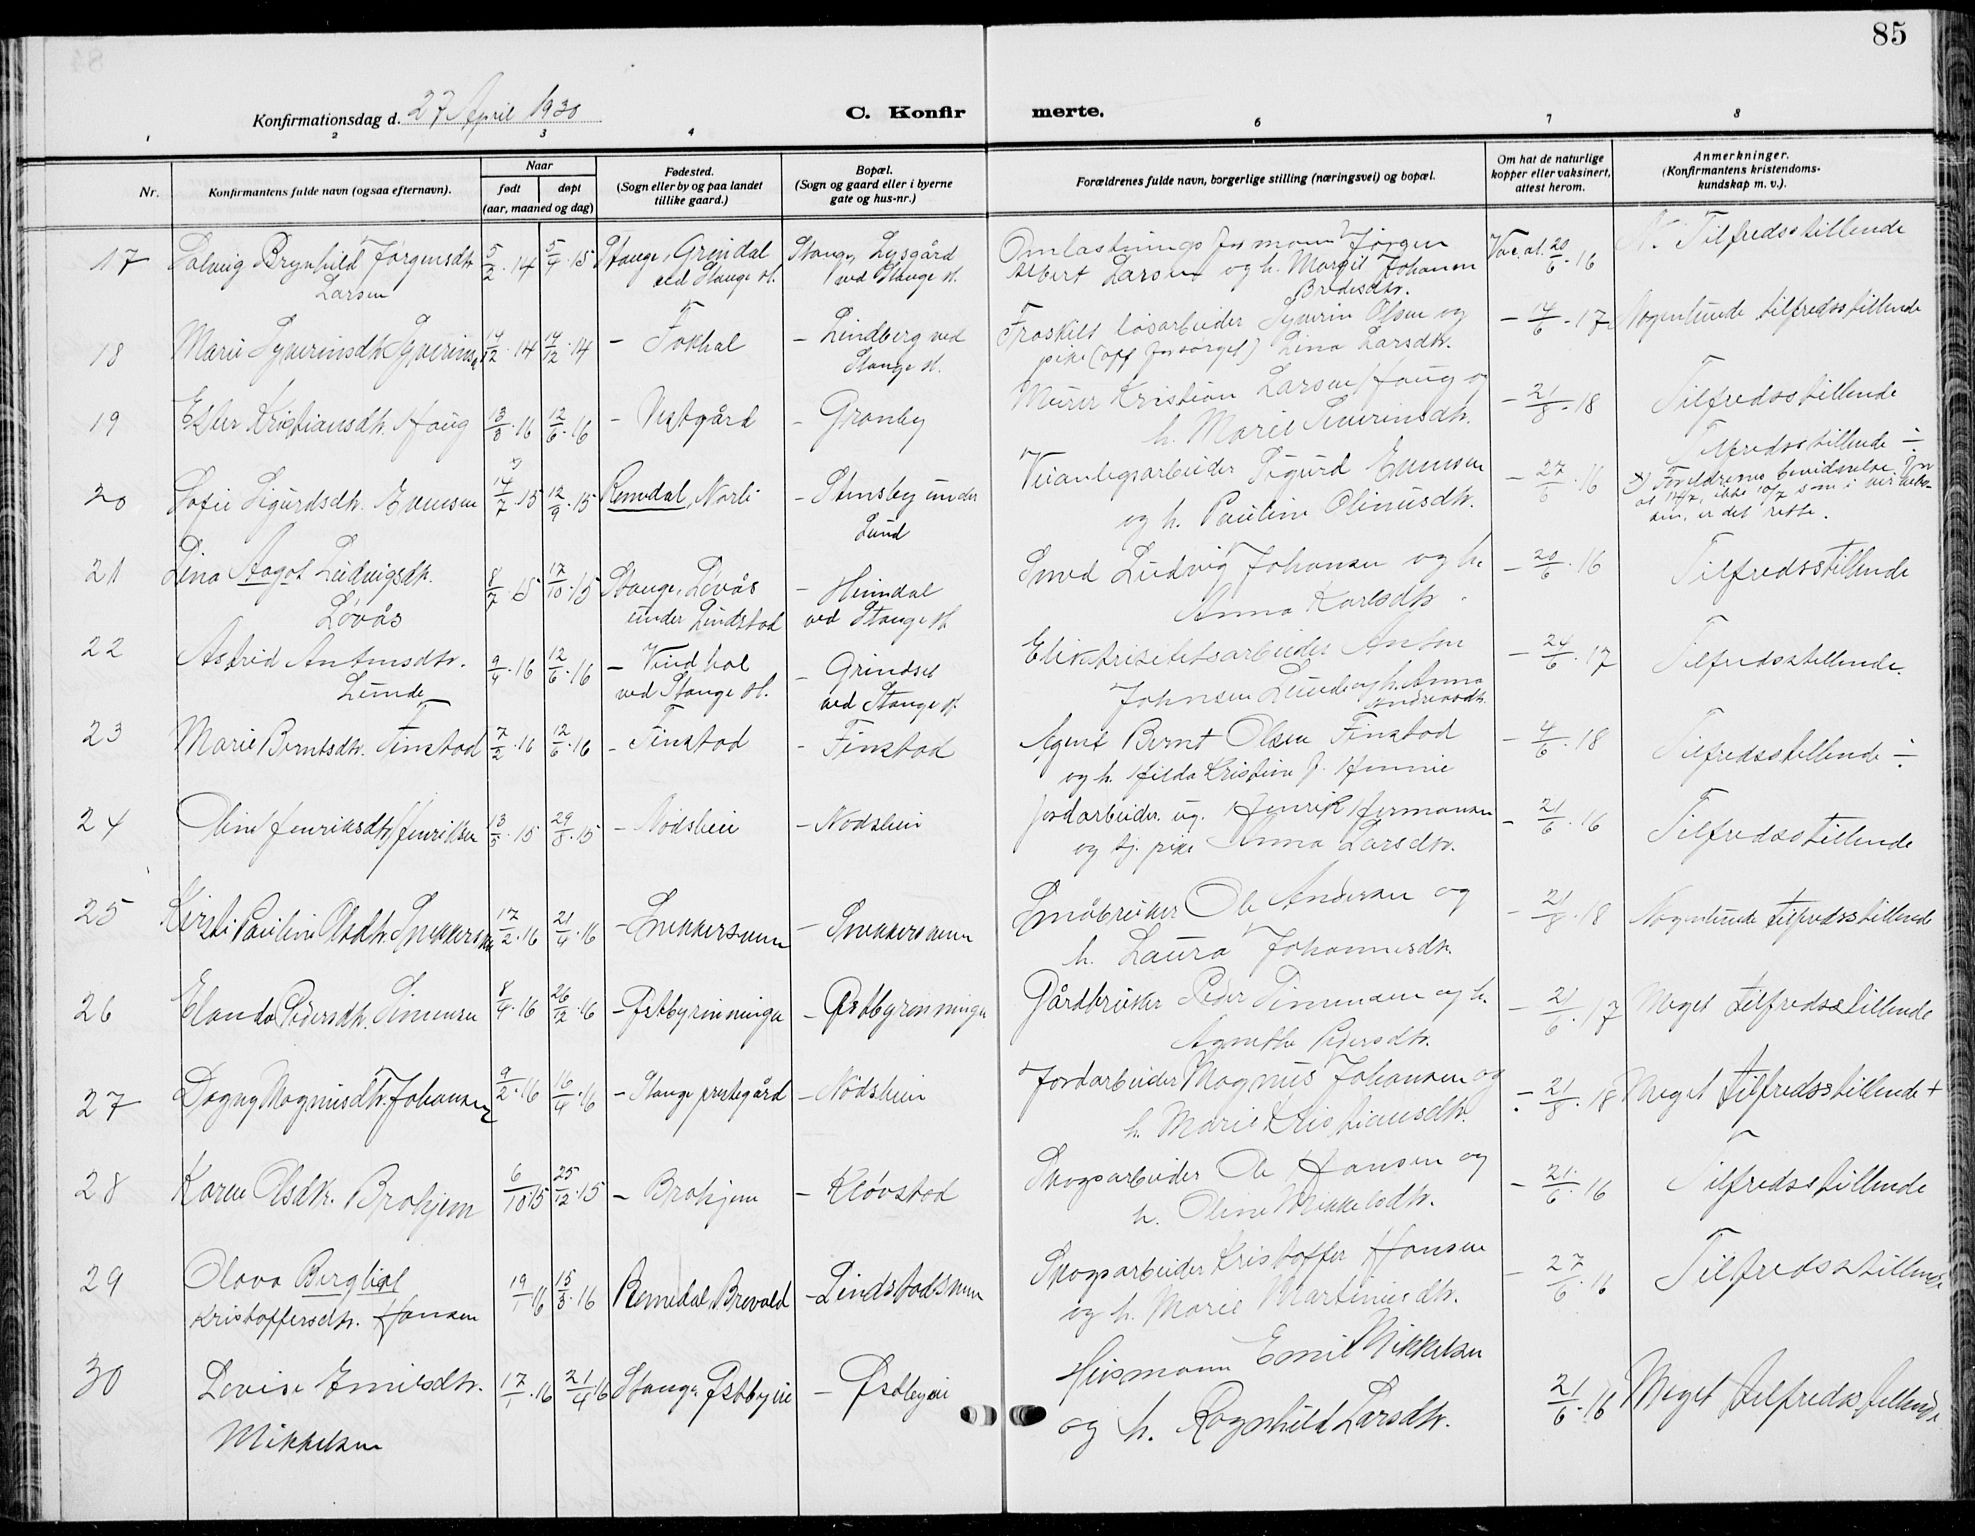 85
Konfirmationsdag d. 27 April 1930
C. Konfirmerte.
1 2 3 4 6 7 8
Nr.
Konfirmantens fulde navn (ogsaa efternavn).
Naar
født døpt
(aar, maaned og dag)
Fødested.
(Sogn eller by og paa landet
tillike gaard.)
Bopæl.
(Sogn og gaard eller i byerne
gate og hus-nr.)
Forældrenes fulde navn, borgerlige stilling (næringsvei) og bopæl.
Om hat de naturlige
kopper eller vaksinert,
attest herom.
Anmerkninger.
(Konfirmantens kristendoms-
kundskap m. v.).
17 Solveig Brynhild Jørgensdtr. 5/2.14 5/4.15 Stange, Grindal Stange, Lysgård Omlastningsformann Jørgen Vac.at. 20/6.16 N. Tilfredsstillende
Larsen ved Stange st. ved Stange st. Albert Larsen og h. Margit Johanne
Bredesdtr.
18 Marie Syverinsdtr. 14/12.14 – Fokhol – Lindberg ved Fraskilt løsarbeider Syverin Olsen og – 14/6.17 Nogenlunde tilfredsstillende
Stange st. pike (off. forsørget) Lina Larsdtr.
19 Ester Kristiansdtr. Haug 13/3.16 12/6.16 – Vestgård – Granby Murer Kristian Larsen Haug og – 21/8.18 Tilfredsstillende
h. Marie Severinsdtr.
20 Sofie Sigurdsdtr. Evensen 14/7.15 12/9.15 Romedal, Norli – Stensby under Veianlegsarbeider Sigurd Evensen – 27/6.16 Tilfredsstillende ÷
Lund og h. Pauline Olinusdtr.
x) Foreldrenes bevidnelse
er det rette.
21 Lina Aagot Ludvigsdtr. 8/7.15 17/10.15 Stange, Løvås – Heimdal Smed Ludvig Johansen og h. – 20/6.16 Tilfredsstillende
Løvås under Lindstad ved Stange st. Anna Karlsdtr.
22 Astrid Antonsdtr. 9/4.16 12/6.16 – Vindhol – Grindset Elektrisitetsarbeider Anton – 24/6.17 Tilfredsstillende.
Lunde ved Stange st. ved Stange st. Johnsen Lunde og h. Anna
Andreasdtr.
23 Marie Berntsdtr. Finstad 7/2.16 12/6.16 – Finstad – Finstad Agent Bernt Olsen Finstad – 4/6.18 Tilfredsstillende ÷
og h. Hilda Kristine f. Hemmie
24 Oline Henriksdtr. Henriksen 13/5.15 29/8.15 – Nodsheie – Nodsheie Jordarbeider ug. Henrik Hermansen – 21/6.16 Tilfredsstillende
og tj. pike Anna Larsdtr.
25 Kirsti Pauline Olsdtr. 17/2.16 21/4.16 – Snekkersveen – Snekkersveen Småbruker Ole Andersen og – 21/8.18 Nogenlunde tilfredsstillende
h. Laura Johannesdtr.
26 Elanda Pedersdtr. Simensen 26/2.16 – Østbyrinninga – Østbyrinninga Gårdbruker Peder Simensen og h. – 21/6.17 Meget tilfredsstillende
Agnethe Pedersdtr.
27 Dagny Magnusdtr. Johansen 9/2.16 16/4.16 – Stange prestegård – Nodsheie Jordarbeider Magnus Johansen og – 21/8.18 Meget tilfredsstillende +
h. Marie Kristiansdtr.
28 Karen Olsdtr. Brohjem 6/10.15 25/12.15 – Brohjem – Kløvstad Skogsarbeider Ole Hansen og – 21/6.16 Tilfredsstillende
h. Oline Mikkelsdtr.
29 Olava Bergliot 19/1.16 15/3.16 Romedal, Brevald – Lindstadsveen Skogsarbeider Kristoffer Hansen – 27/6.16 Tilfredsstillende
Kristoffersdtr. Hansen og h. Marie Martinusdtr.
30 Lovise Emilsdtr. 17/1.16 21/4.16 Stange Østbyeie – Østbyeie Husmann Emil Mikkelsen 21/6.16 Meget tilfredsstillende
Mikkelsen og h. Ragnhild Larsdtr.